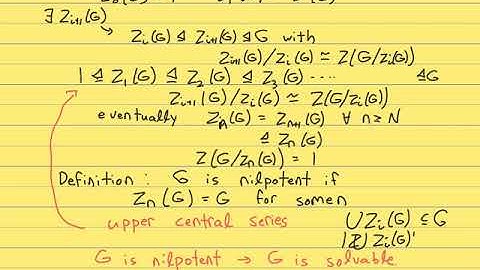 ∃ Z_{i+1}(G)
Z_i(G) ⊴ Z_{i+1}(G) ⊴ G with
Z_{i+1}(G)/Z_i(G) ≃ Z(G/Z_i(G))
1 ⊴ Z_1(G) ⊴ Z_2(G) ⊴ Z_3(G) ···· ⊴G
Z_{i+1}(G)/Z_i(G) ≃ Z(G/Z_i(G))
eventually Z_n(G) = Z_{n+1}(G) ∀ n≥N
⊴ Z_n(G)
Z(G/Z_n(G)) = 1
Definition: G is nilpotent if
Z_n(G) = G for some n
upper central series ∪Z_i(G) ⊆ G
Z_i(G)'
G is nilpotent → G is solvable